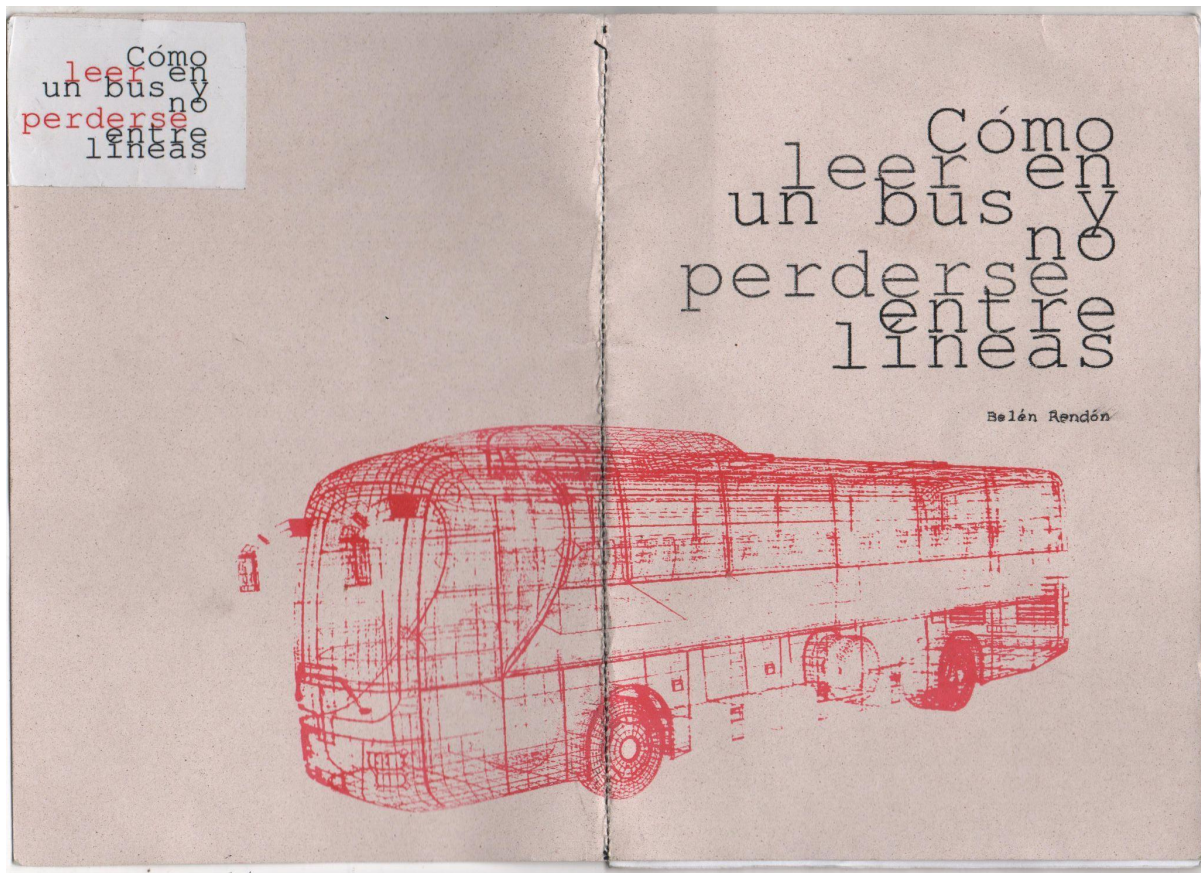 Cómo
leer en
un bus y
no
perderse
entre
líneas
Cómo
leer en
un bus y
no
perderse
entre
líneas
Belén Rendón